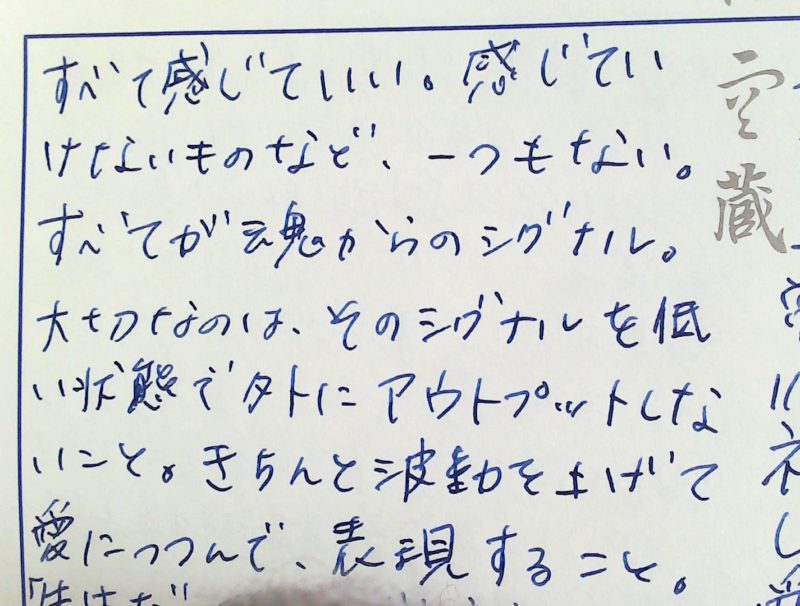 すべて感じていい。感じてい
けないものなど、一つもない。
すべてが魂からのシグナル。
大切なのは、そのシグナルを低
い状態で外にアウトプットしな
いこと。きちんと波動を上げて
愛につつんで、表現すること。
空蔵